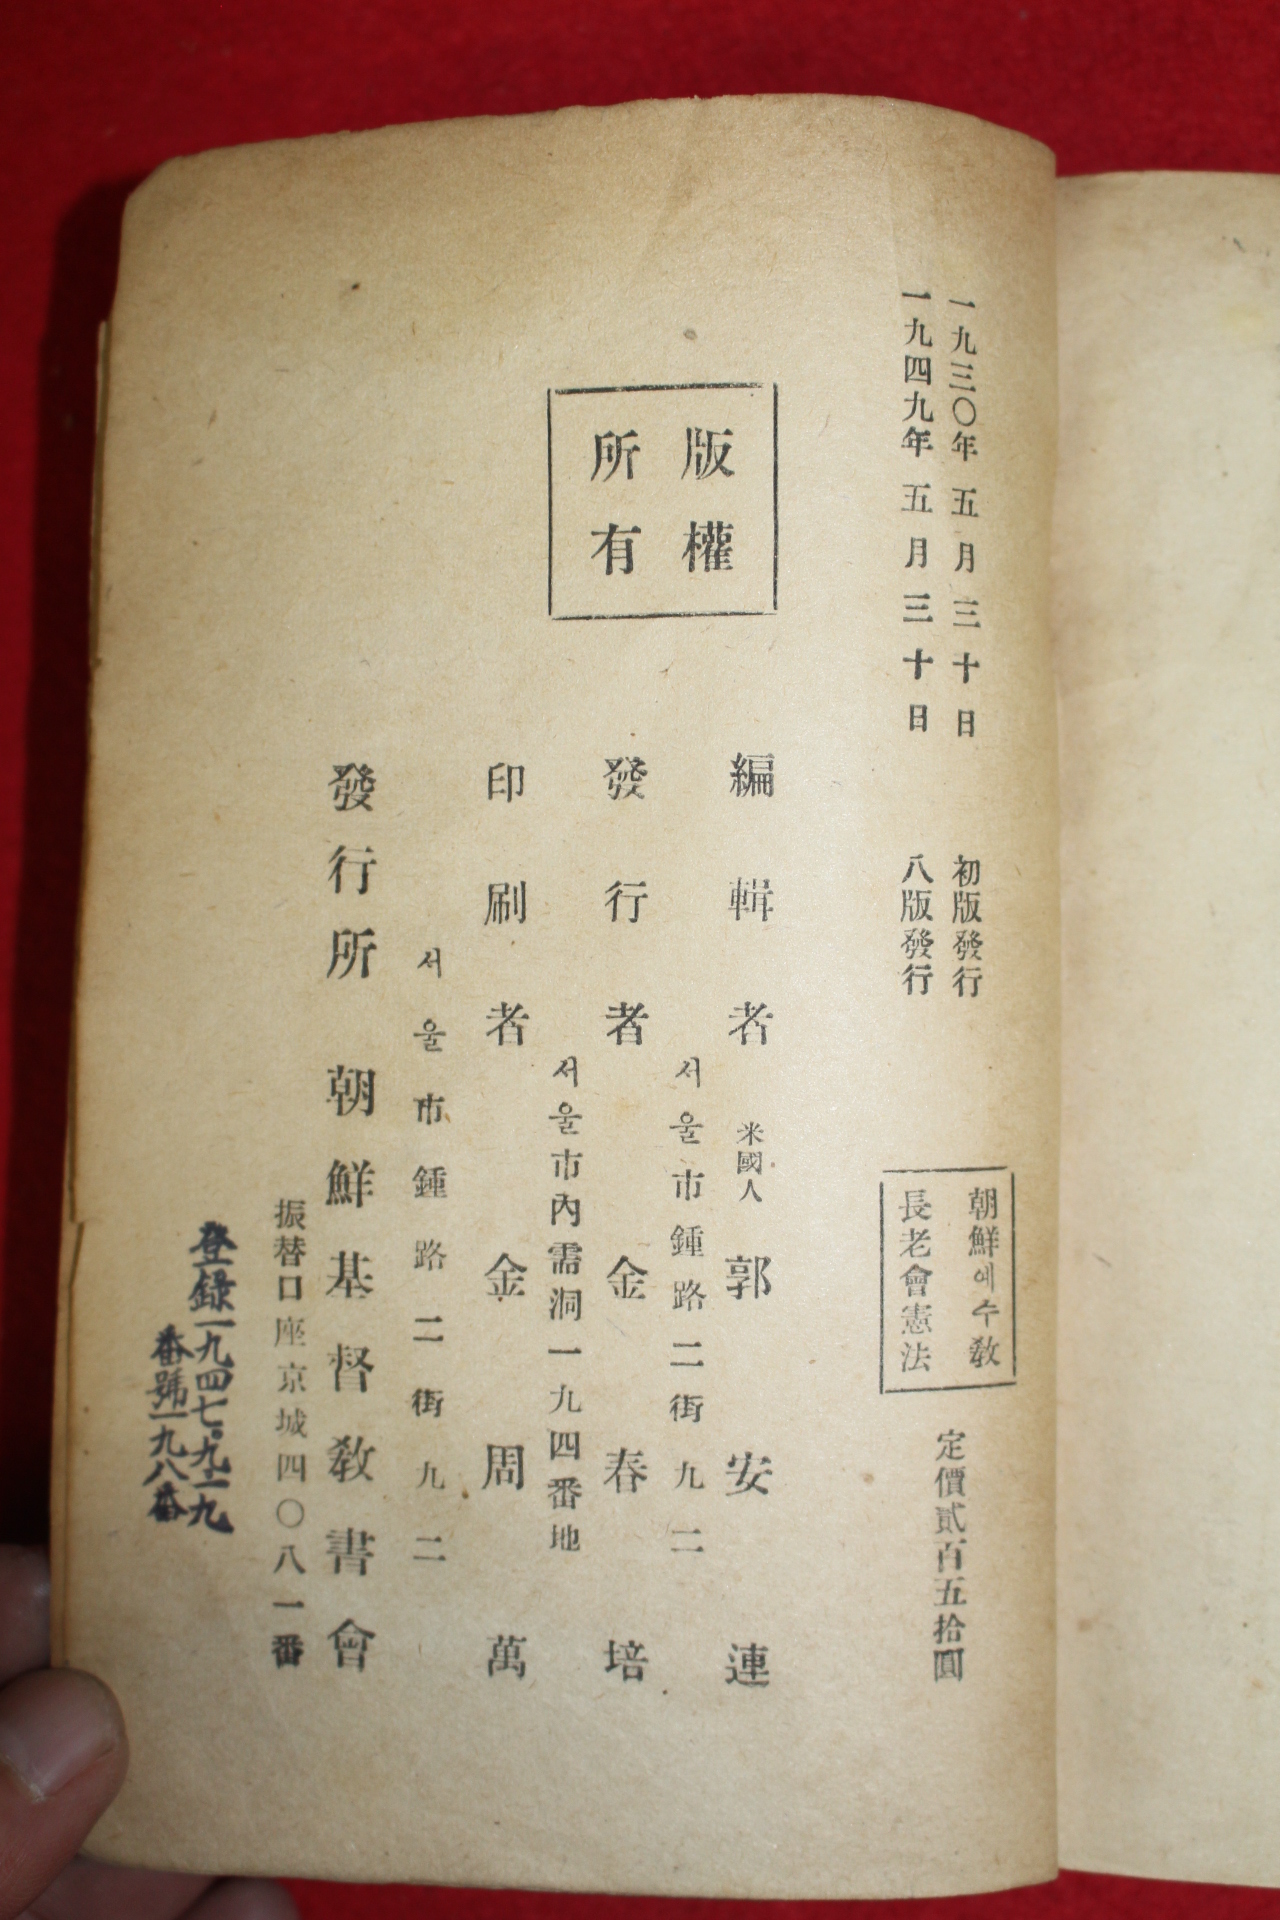 一九三〇年五月三十日 初版發行
一九四九年五月三十日 八版發行
朝鮮예수敎
長老會憲法
定價貳百五拾圓
版權
所有
編輯者 米國人 郭安連
서울市鍾路二街九二
發行者 金春培
서울市內需洞一九四番地
印刷者 金周萬
서울市鍾路二街九二
發行所 朝鮮基督敎書會
振替口座京城四〇八一番
登錄一九四七·九·一九
番號一九八番